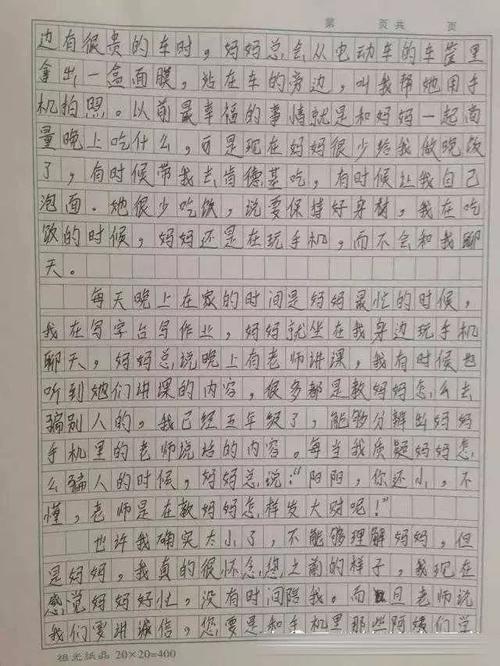 第 页共 页
边有很贵的车时，妈妈总会从电动车的车筐里
拿出一盒面膜，站在车的旁边，叫我帮她用手
机拍照。以前最幸福的事情就是和妈妈一起商
量晚上吃什么，可是现在妈妈很少给我做晚饭
了，有时候带我去肯德基吃，有时候让我自己
泡面。她很少吃饭，说要保持好身材，我在吃
饭的时候，妈妈还是在玩手机，而不会和我聊
天。
每天晚上在家的时间是妈妈最忙的时候，
我在写字台写作业，妈妈就坐在我身边玩手机
聊天，妈妈总说晚上有老师讲课，我有时候也
听到她们讲课的内容，很多都是教妈妈怎么去
骗别人的。我已经五年级了，能够分辨出妈妈
手机里的老师说话的内容。每当我质疑妈妈怎
么骗人的时候，妈妈总说：“阳阳，你还小，不
懂，老师是在教妈妈怎样发大财呢！”
也许我确实太小了，不能够理解妈妈，但
是妈妈，我真的很怀念您之前的样子，我现在
感觉妈妈好忙，没有时间陪我。而且老师说
我们要讲诚信，您要是和手机里那些阿姨们学
祖光纸品 20×20=400